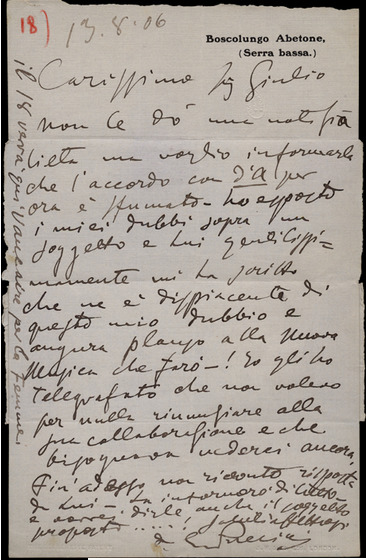 18)
13.8.06
Boscolungo Abetone,
(Serra bassa.)
Carissimo Sig Giulio
non Le dò una notizia
lieta ma voglio informarla
che l'accordo con D'A per
ora è sfumato - ho esposto
i miei dubbi sopra un
soggetto e Lui gentilissi-
mamente mi ha scritto
che ne è dispiacente di
questo mio dubbio e
augura plauso alla nuova
Musica che farò-! Io gli ho
telegrafato che non volevo
per nulla rinunziare alla
sua collaborazione e che
bisognava vederci ancora,
Fin'adesso non ricevuto risposta
da Lui - La informerò di tutto
e vorrei dirle anche il soggetto
proposto.....!
il 18 verrà qui Vaucaire per la Femme